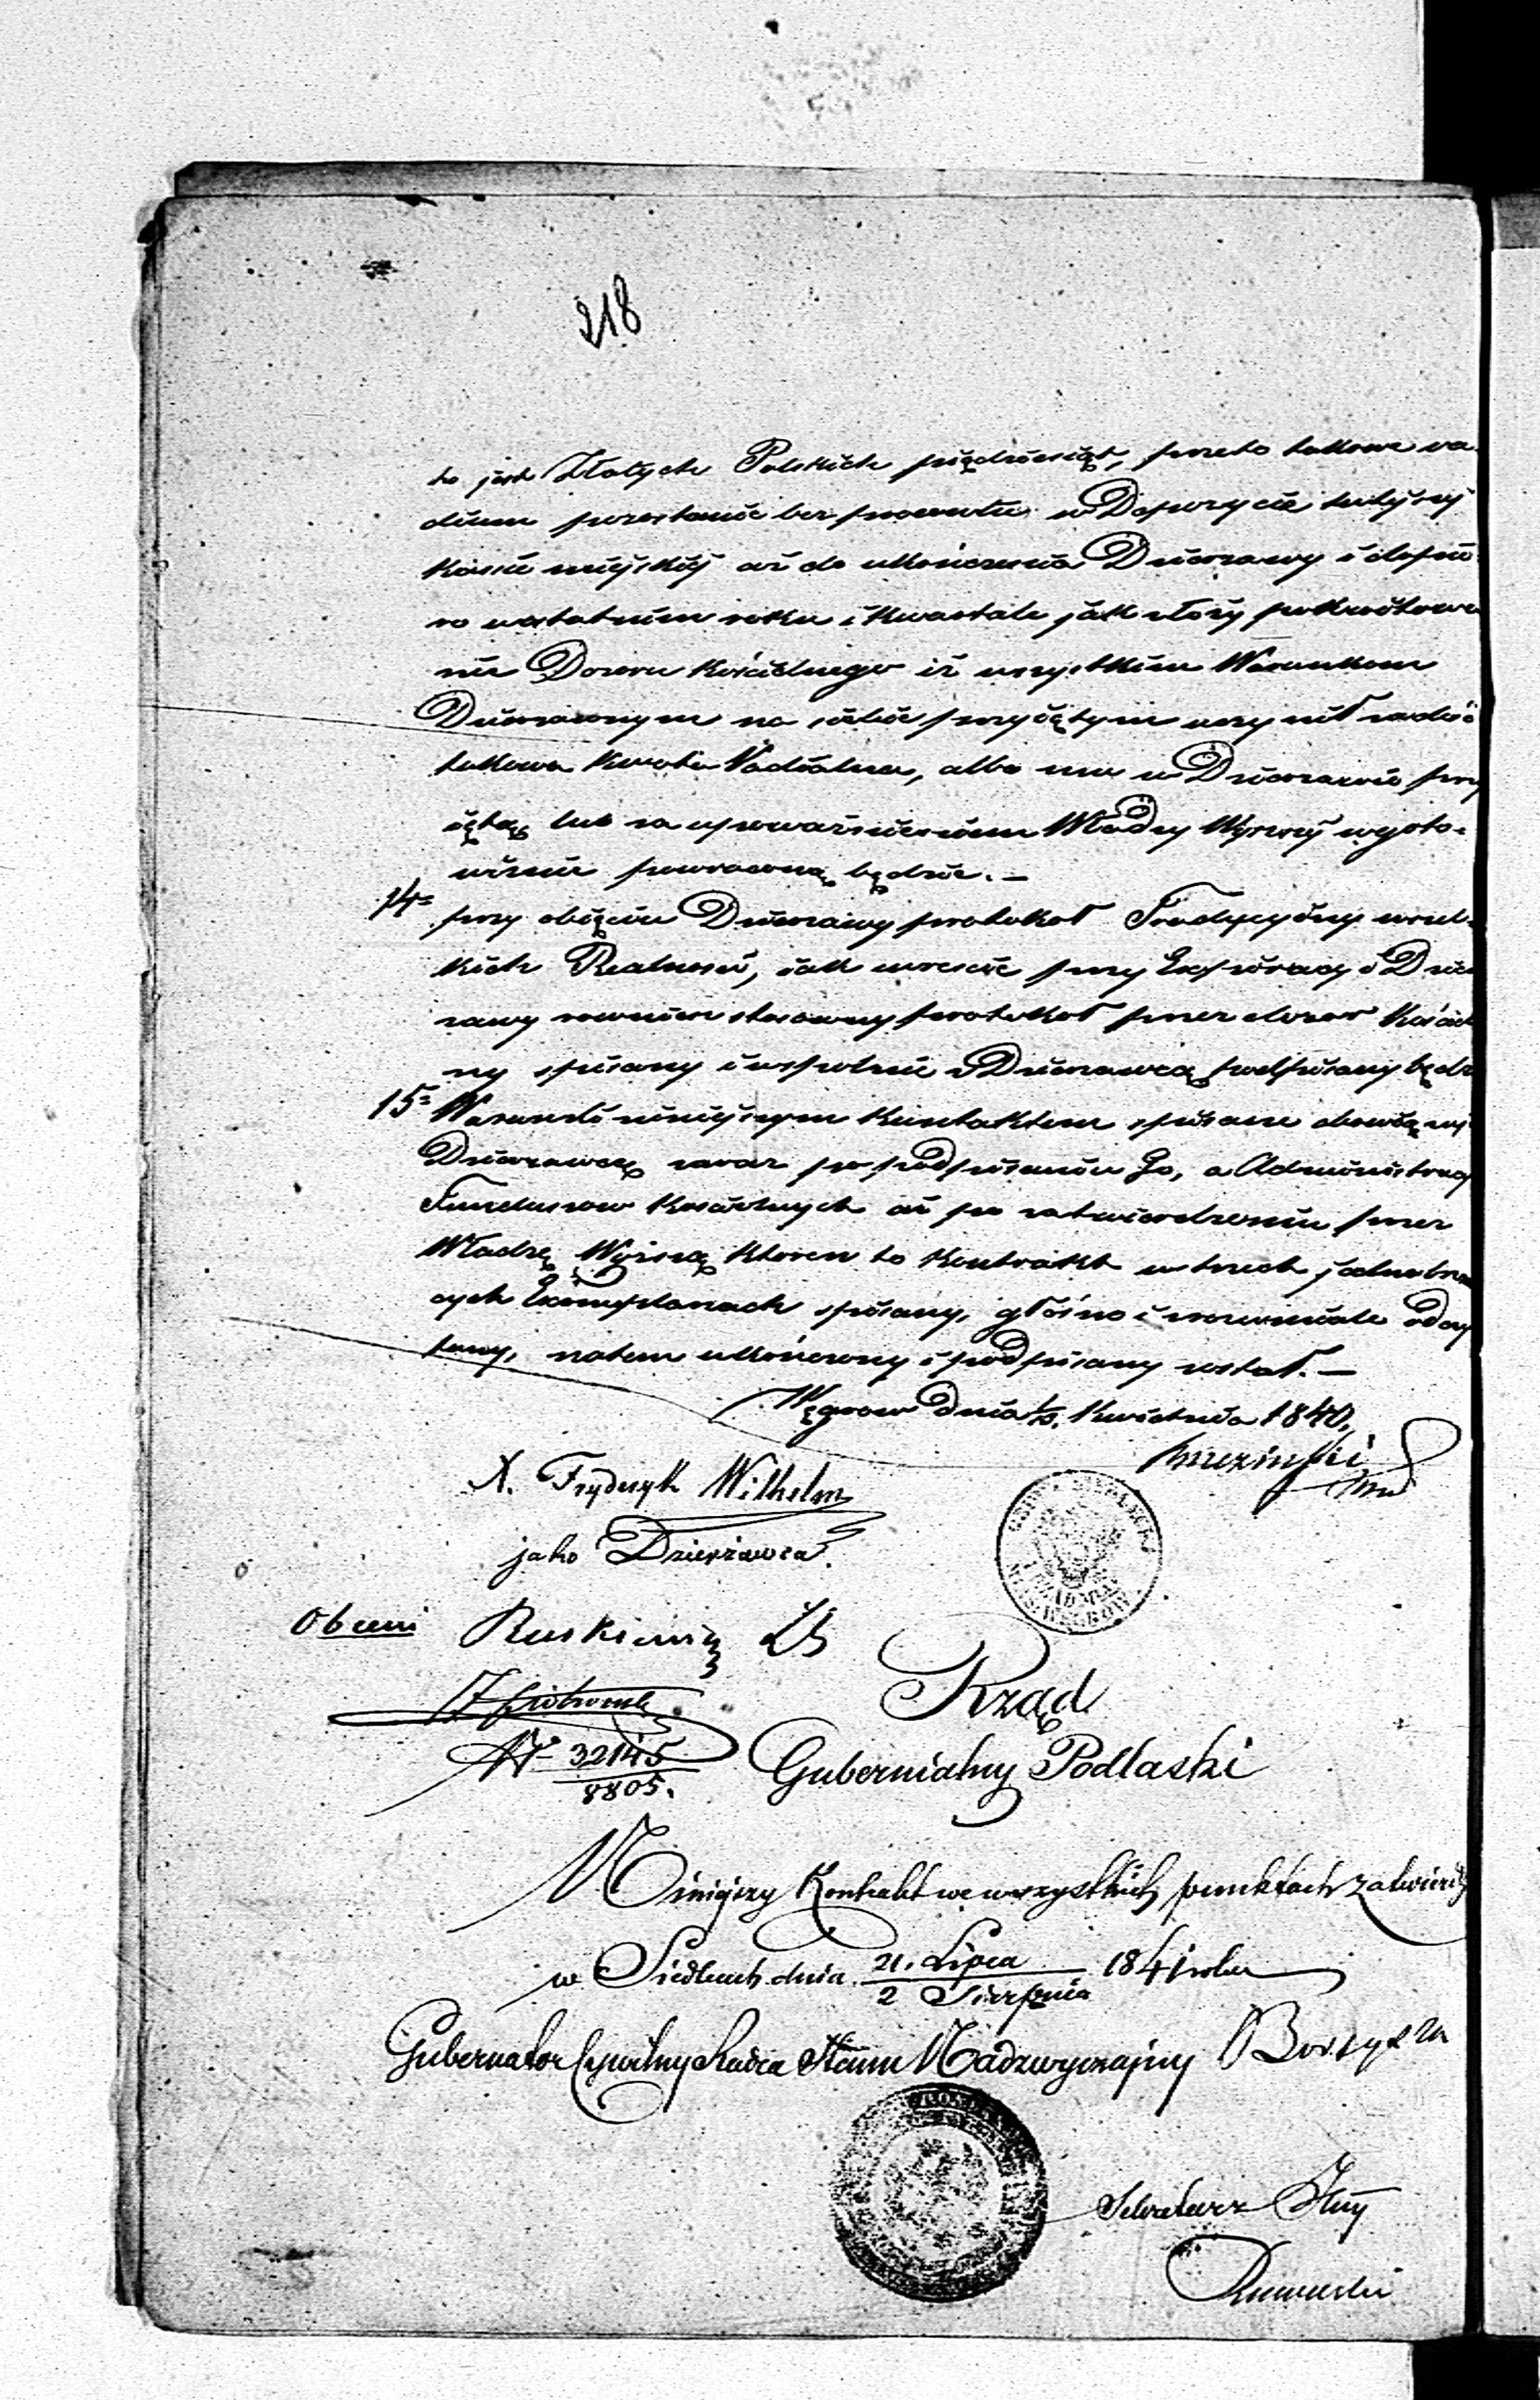 218
to jest Złotych Polskich pięćdziesiąt, przeto takowe va
dium pozostanie bez procentu w Depozycie tutejszej
Kassie miejskiej aż do ukończenia Dzierżawy i dopie
ro w ostatnim roku i kwartale jak złoży pokwitowa
nie Dozoru Kościelnego iż wszystkim Warunkom
Dzierżawnym na siebie przyjętym uczynił zadość
takowa kwota Vadialna, albo mu w Dzierżawie przy
jętą lub za upoważnieniem Władzy Wyższej w goto-
wiźnie powrocona będzie. —
14= przy objęciu Dzierżawy protokół Tradycyjny wszel-
kich Realności, jak wreszcie przy Expiracyi Dzier
żawy rownież stosowny protokół przez dozor Kościel
ny spisany i wspolnie z Dzierżawcą podpisany będzie
15= Warunki niniejszym Kontraktem spisane obowiązują
Dzierżawcę zaraz po podpisaniu Go, a Administracyą
Funduszow Kościelnych aż po zatwierdzeniu przez
Władzę Wyższą ktoren to Kontrakt w trzech jednobrzmią
cych Exemplarzach spisany, głośno i zrozumiale odczy
tany, zatem ukończony i podpisany został. —
Węgrow dnia Kwietnia 1840.
X. Fryderyk Wilhelm
jako Dzierżawca.
Obecni Ruskiewicz
N 32145
8805.
Rząd
Gubernialny Podlaski
Niniejszy Kontrakt we wszystkich punktach zatwierdza
w Siedlcach dnia 21. Lipca 1841 roku
2 Sierpnia
Gubernator Cywilny Radca Stanu Nadzwyczajny
Sekretarz Jlny